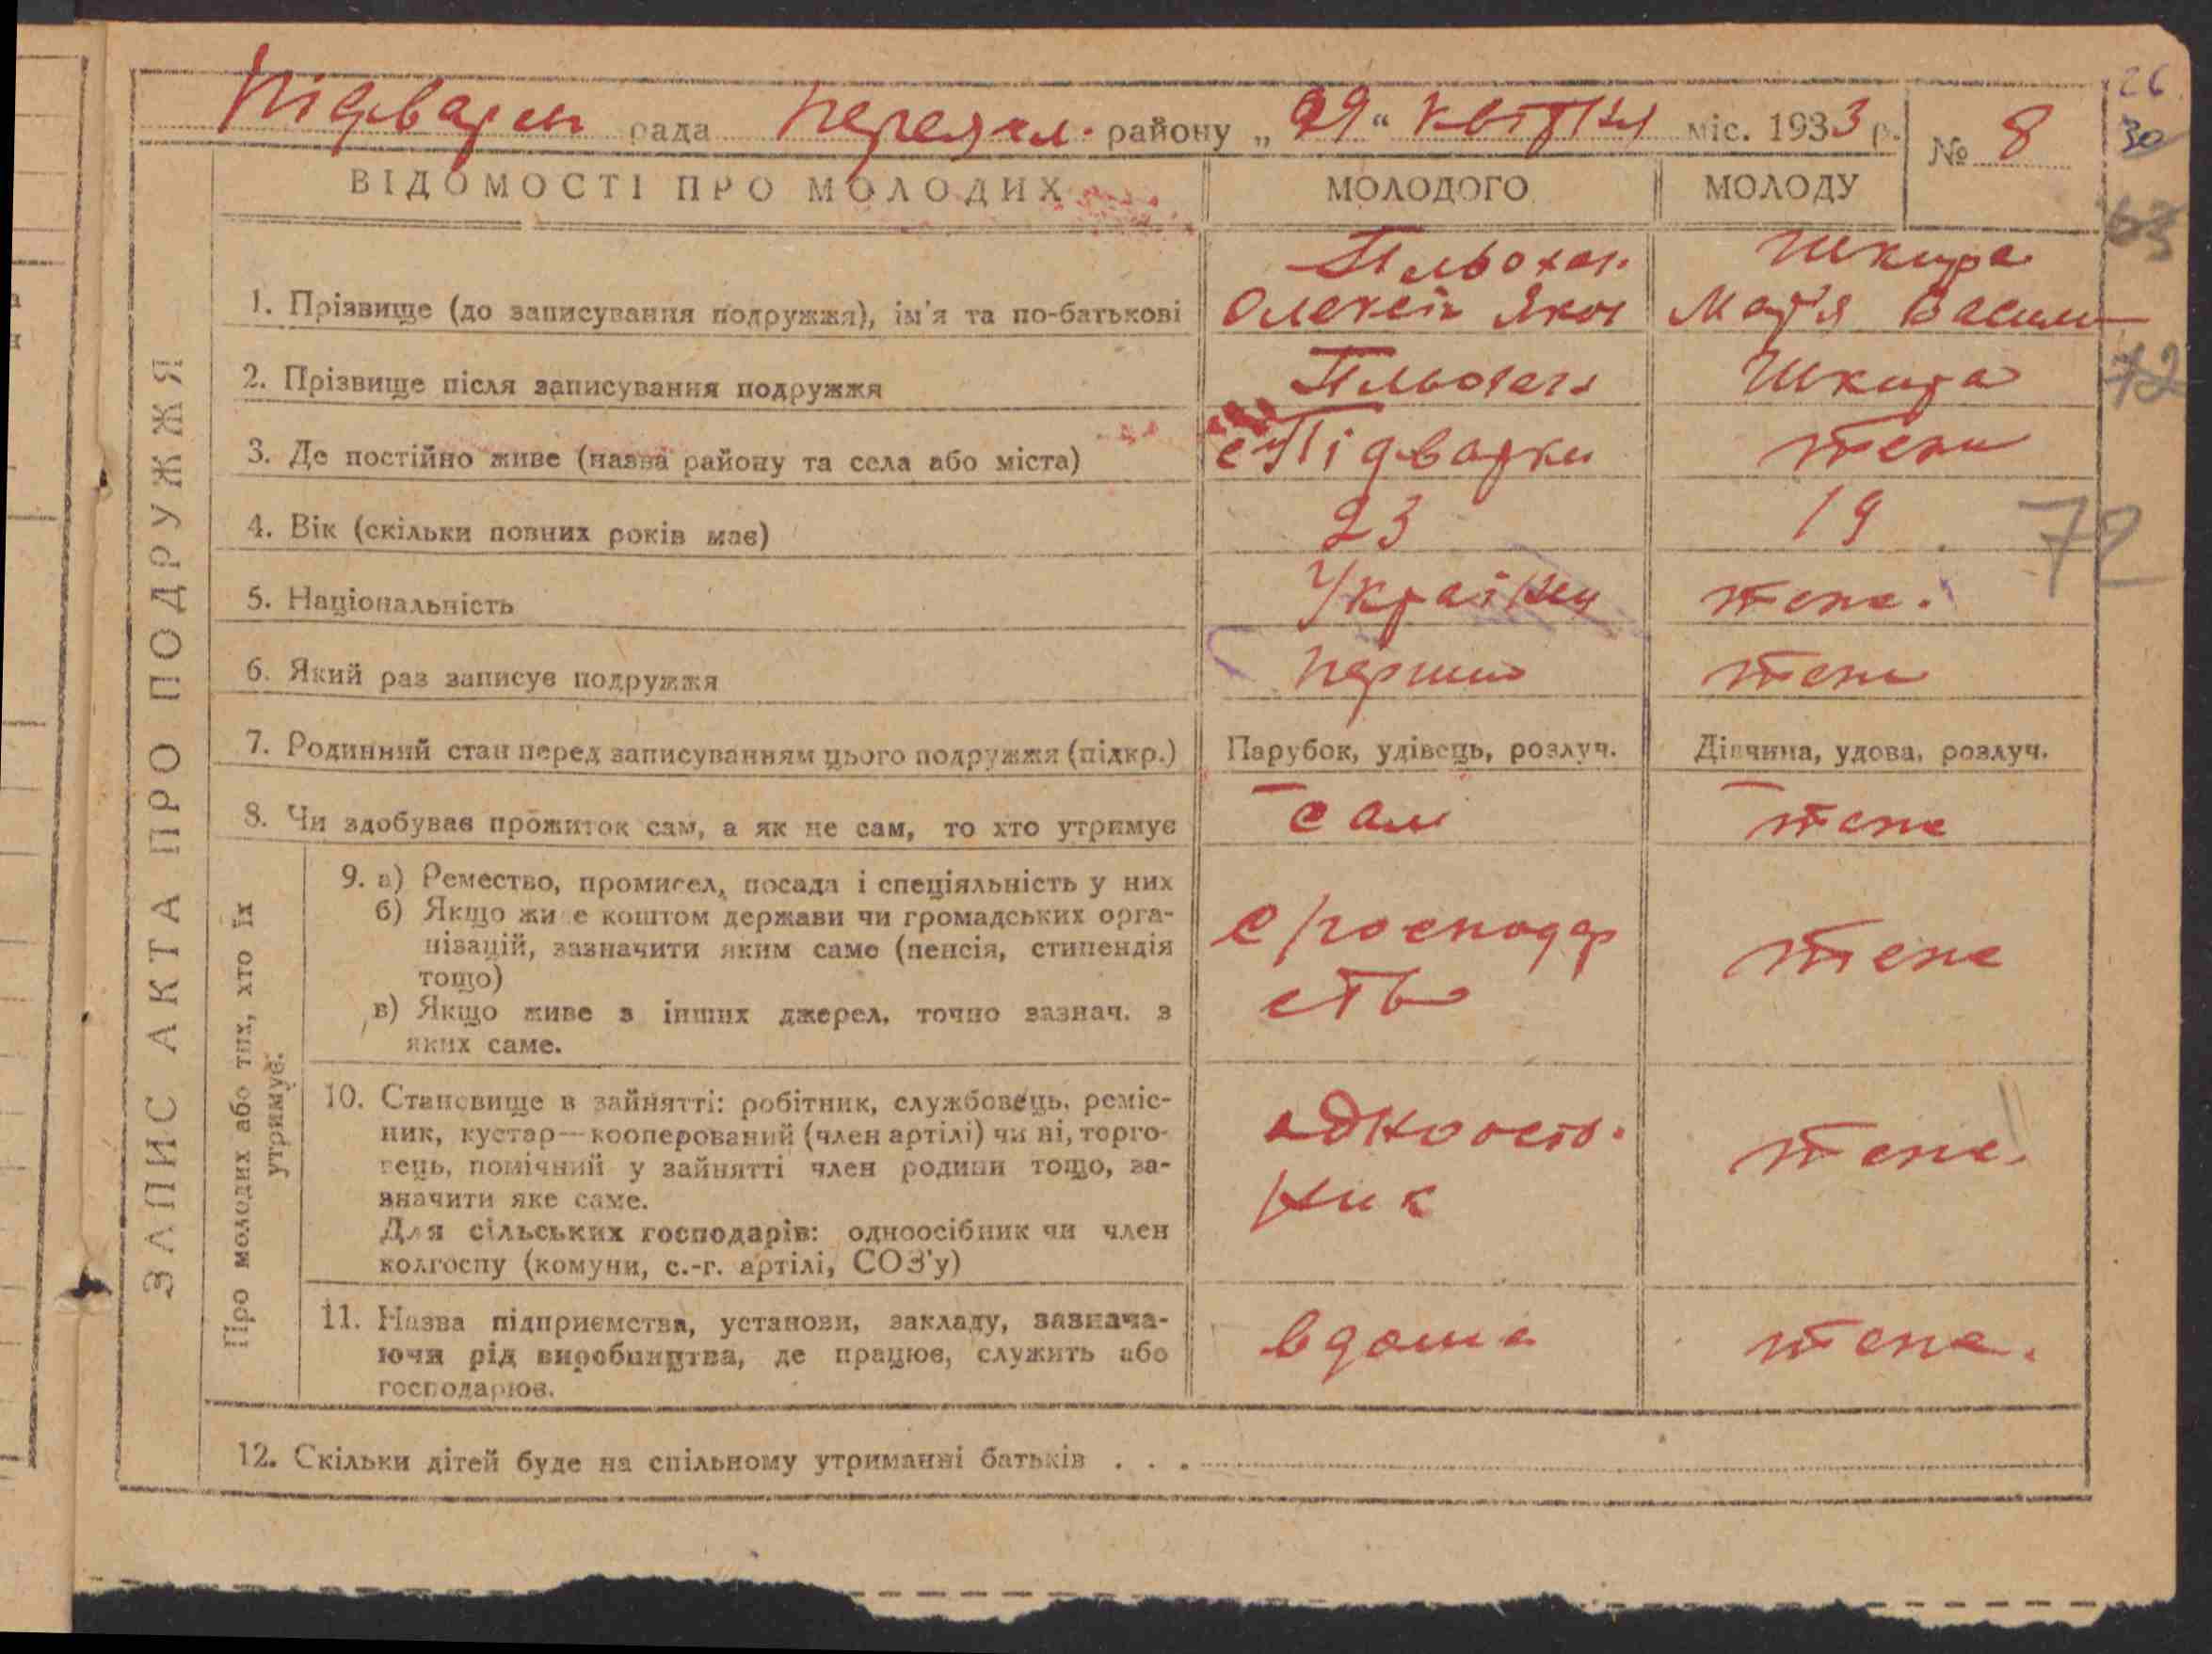 Підварки рада Переял. району „29“ квітня міс. 1933 р. № 8
26
30
63
72
72
ЗАПИС АКТА ПРО ПОДРУЖЖЯ
ВІДОМОСТІ ПРО МОЛОДИХ МОЛОДОГО МОЛОДУ
Шкира
1. Прізвище (до записування подружжя), ім'я та по-батькові Олексій Яков Марія Васили
2. Прізвище після записування подружжя Шкира
3. Де постійно живе (назва району та села або міста) с Підварки теж
4. Вік (скільки повних років має) 23 19
5. Національність Українец теже.
6. Який раз записує подружжя перший теж
7. Родинний стан перед записуванням цього подружжя (підкр.) Парубок, удівець, розлуч. Дівчина, удова, розлуч.
8. Чи здобуває прожиток сам, а як не сам, то хто утримує сам теже
Про молодих або тих, хто їх
утримує.
9. а) Ремество, промисел, посада і спеціяльність у них
б) Якщо живе коштом держави чи громадських орга-
нізацій, зазначити яким саме (пенсія, стипендія
тощо)
в) Якщо живе з інших джерел, точно зазнач. з
яких саме.
с/господар
ств
теже
10. Становище в зайнятті: робітник, службовець, реміс-
ник, кустар—кооперований (член артілі) чи ні, торго-
вець, помічний у зайнятті член родини тощо, за-
значити яке саме.
Для сільських господарів: одноосібник чи член
колгоспу (комуни, с.-г. артілі, СОЗ'у)
одноосіб.
ник
теже.
11. Назва підприємства, установи, закладу, зазнача-
ючи рід виробництва, де працює, служить або
господарює.
вдома теже.
12. Скільки дітей буде на спільному утриманні батьків . . .